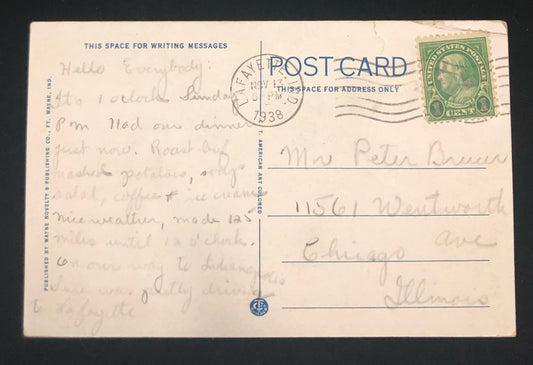 THIS SPACE FOR WRITING MESSAGES
Hello Everybody:
It's 1 o'clock Sunday
P m Had our dinner
just now. Roast beef
mashed potatoes, soup
salad, coffee & ice cream
Nice weather, made 125
miles until 12 o'clock.
On our way to Indianapolis
was driving
to Lafayette
PUBLISHED BY WAYNE NOVELTY & PUBLISHING CO., FT. WAYNE, IND.
T. AMERICAN ART COLORED
POST CARD
THIS SPACE FOR ADDRESS ONLY
LAFAYETTE, IND.
NOV 13
PM
1938
UNITED STATES POSTAGE
1 CENT 1
Mr Peter
11561 Wentworth
Ave
Chicago
Illinois